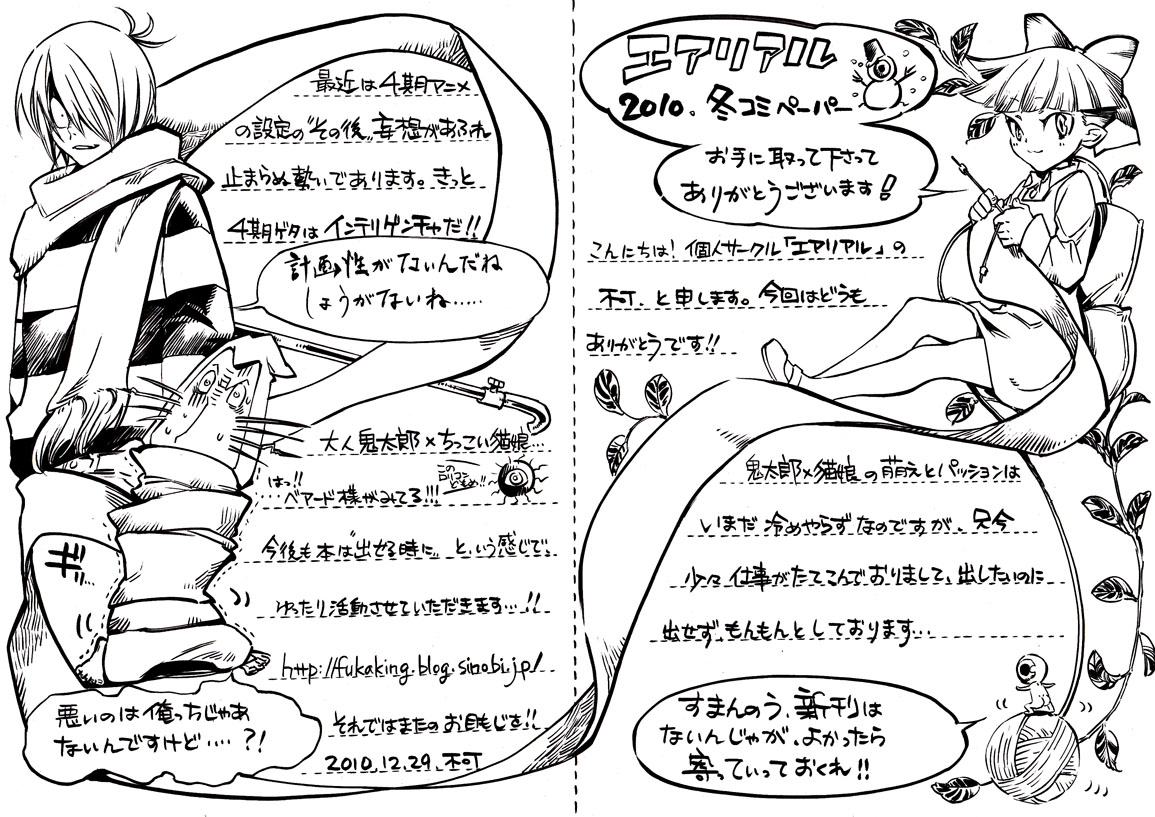 エアリアル
2010.冬コミペーパー
お手に取って下さって
ありがとうございます!
こんにちは!個人サークル「エアリアル」の
不可.と申します。今回はどうも
ありがとうです!!
鬼太郎×猫娘の萌えとパッションは
いまだ冷めやらずなのですが、只今
少々仕事がたてこんでおりまして、出したいのに
出せず、もんもんとしております...
すまんのう、新刊は
ないんじゃが、よかったら
寄っていっておくれ!!
最近は4期アニメ
の設定の"その後"妄想があふれ
止まらぬ勢いであります。きっと
4期ゲタはインテリゲンチャだ!!
計画性がないんだね
しょうがないね.....
大人鬼太郎×ちっこい猫娘...
はっ!!
...ベアード様がみてる!!!
この
ロリコン
どもめ!!
今後も本は"出せる時に"という感じで、
ゆったり活動させていただきます...!!
ギッ
http://fukaking.blog.sinobi.jp/
それではまたのお目もじを!!
2010.12.29.不可
悪いのは俺っちじゃあ
ないんですけど....?!